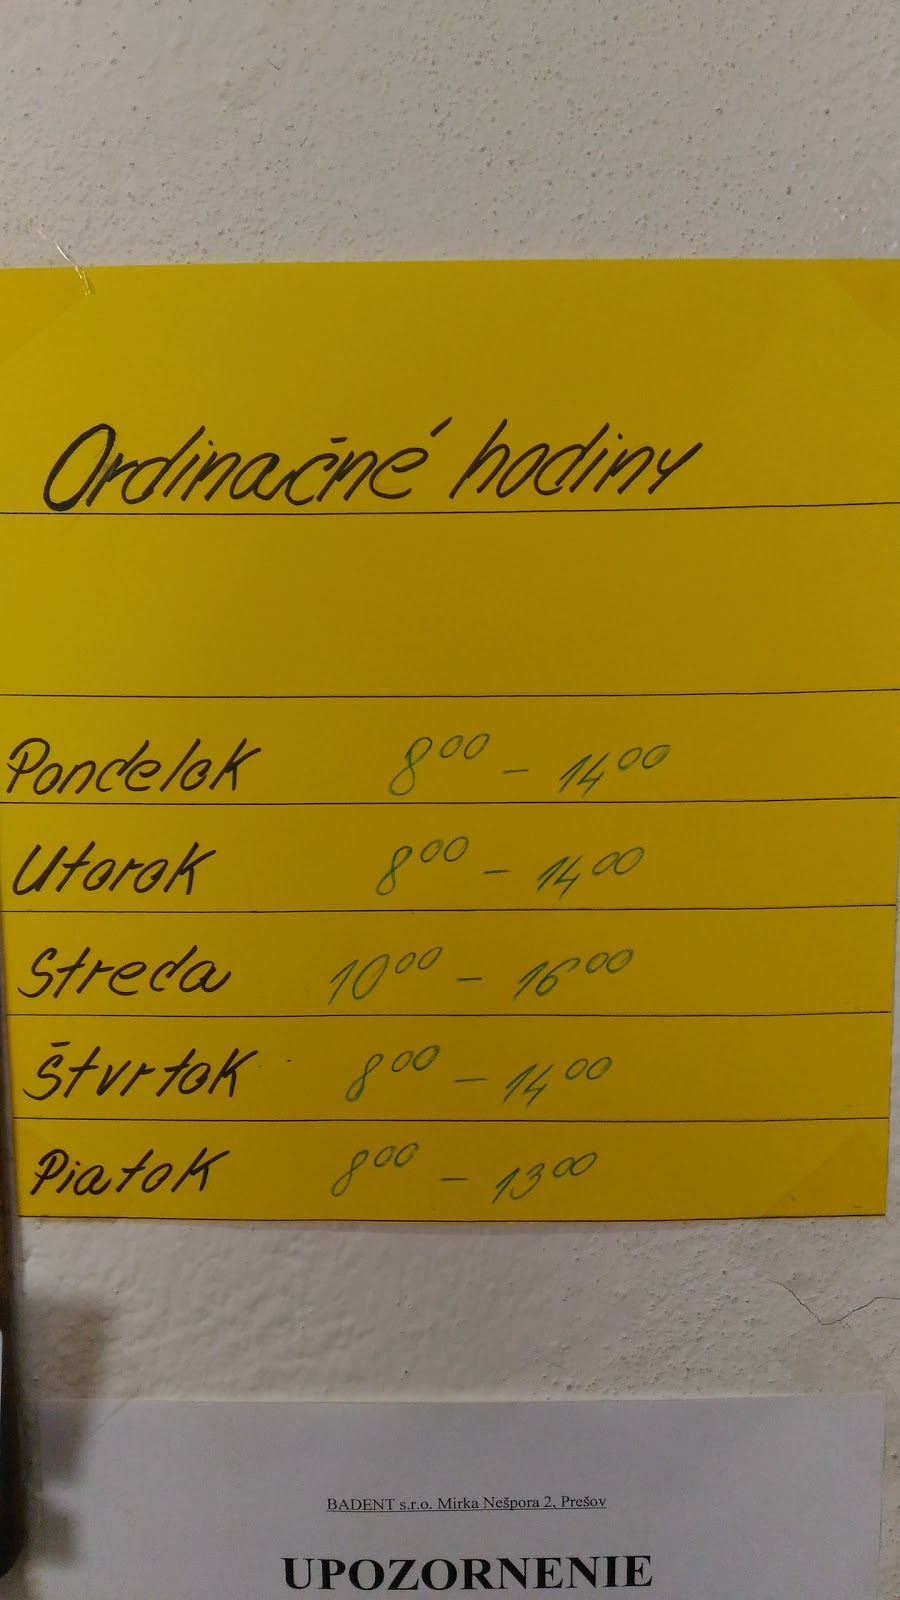 Ordinačné hodiny
Pondelok 8⁰⁰ - 14⁰⁰
Utorok 8⁰⁰ - 14⁰⁰
Streda 10⁰⁰ - 16⁰⁰
Štvrtok 8⁰⁰ - 14⁰⁰
Piatok 8⁰⁰ - 13⁰⁰
BADENT s.r.o. Mirka Nešpora 2, Prešov
UPOZORNENIE